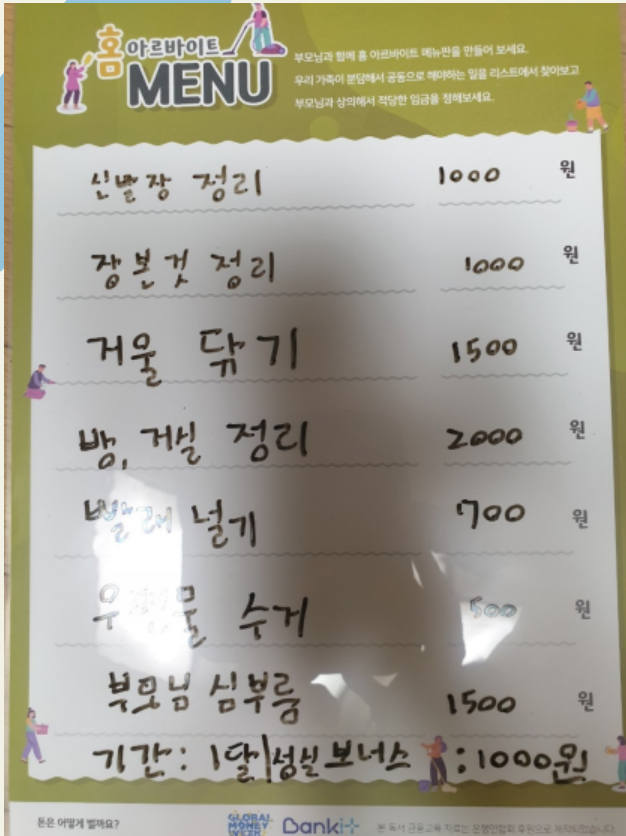 홈 아르바이트
MENU
부모님과 함께 홈 아르바이트 메뉴판을 만들어 보세요.
우리 가족이 분담해서 공동으로 해야하는 일을 리스트에서 찾아보고
부모님과 상의해서 적당한 임금을 정해보세요.
신발장 정리 1000 원
장본것 정리 1000 원
거울 닦기 1500 원
방, 거실 정리 2000 원
빨래 널기 700 원
우편물 수거 500 원
부모님 심부름 1500 원
기간: 1달|성실 보너스 :1000원
돈은 어떻게 벌까요?
GLOBAL MONEY WEEK Bankit 본 독서 금융교육 자료는 은행연합회 후원으로 제작되었습니다.